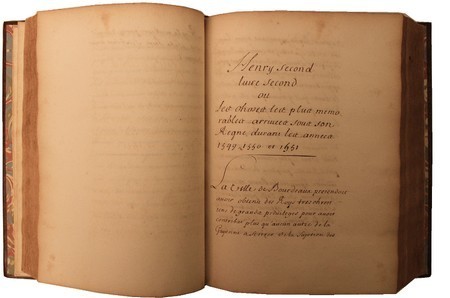 Henry second
livre second
ou
les choses les plus memo
rables arrivees sous son
Regne, durant les annees
1549 1550 et 1551
La Ville de Bourdeaux pretendant
avoir obtenu des Roys tres chres
de grands privileges pour avoir
plus qu'aucun autre de la